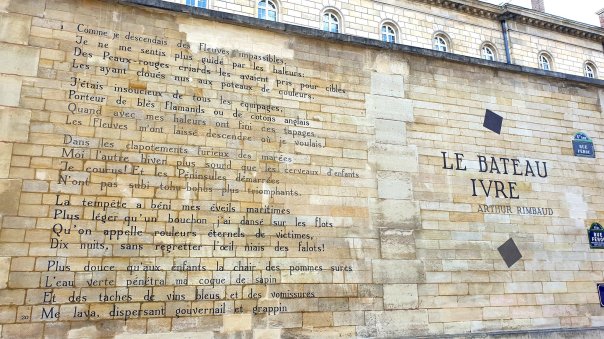 1 Comme je descendais des Fleuves impassibles,
Je ne me sentis plus guidé par les haleurs:
Des Peaux-rouges criards les avaient pris pour cibles
Les ayant cloués nus aux poteaux de couleurs.
J'étais insoucieux de tous les équipages,
Porteur de blés flamands ou de cotons anglais
Quand avec mes haleurs ont fini ces tapages
Les Fleuves m'ont laissé descendre où je voulais.
Dans les clapotements furieux des marées
Moi l'autre hiver plus sourd que les cerveaux d'enfants
Je courus! Et les Péninsules démarrées
N'ont pas subi tohu-bohus plus triomphants.
La tempête a béni mes éveils maritimes
Plus léger qu'un bouchon j'ai dansé sur les flots
Qu'on appelle rouleurs éternels de victimes,
Dix nuits, sans regretter l'œil niais des falots!
Plus douce qu'aux enfants la chair des pommes sures
L'eau verte pénétra ma coque de sapin
Et des taches de vins bleus et des vomissures
20 Me lava, dispersant gouvernail et grappin
LE BATEAU
IVRE
ARTHUR RIMBAUD
RUE
FÉROU
RUE
FÉROU